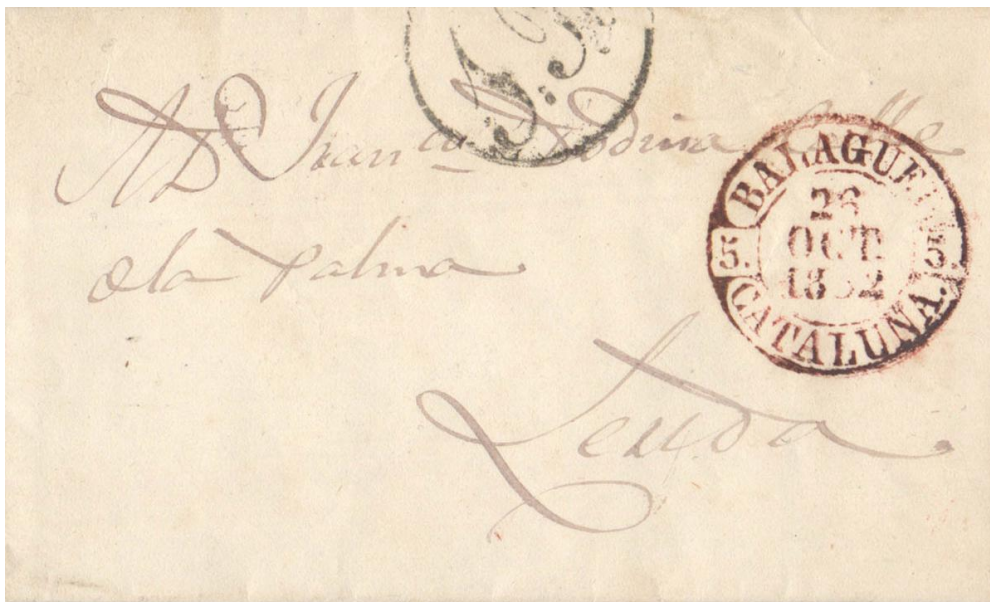 A Dn Franco Rodina Calle
de la Palma
Lerida
BALAGUER
5. 5.
26
OCT.
1852
CATALUÑA.